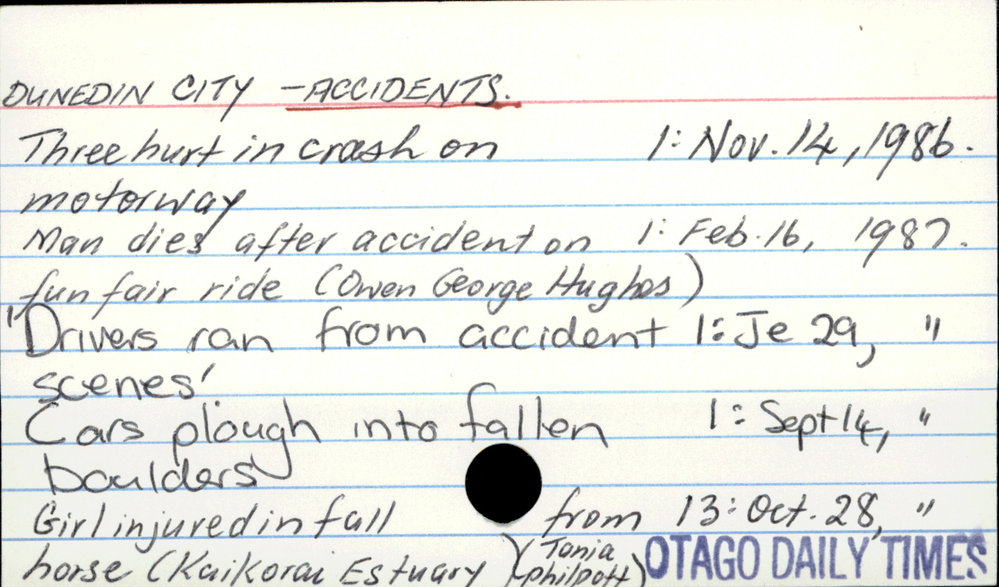 DUNEDIN CITY - ACCIDENTS.
Three hurt in crash on 1: Nov. 14, 1986.
motorway
Man dies after accident on 1: Feb. 16, 1987.
fun fair ride (Owen George Hughes)
'Drivers ran from accident 1: Je 29, "
scenes'
Cars plough into fallen 1: Sept 14, "
boulders
Girl injured in fall from 13: Oct. 28, "
horse (Kaikorai Estuary) (Tania
philpott) OTAGO DAILY TIMES